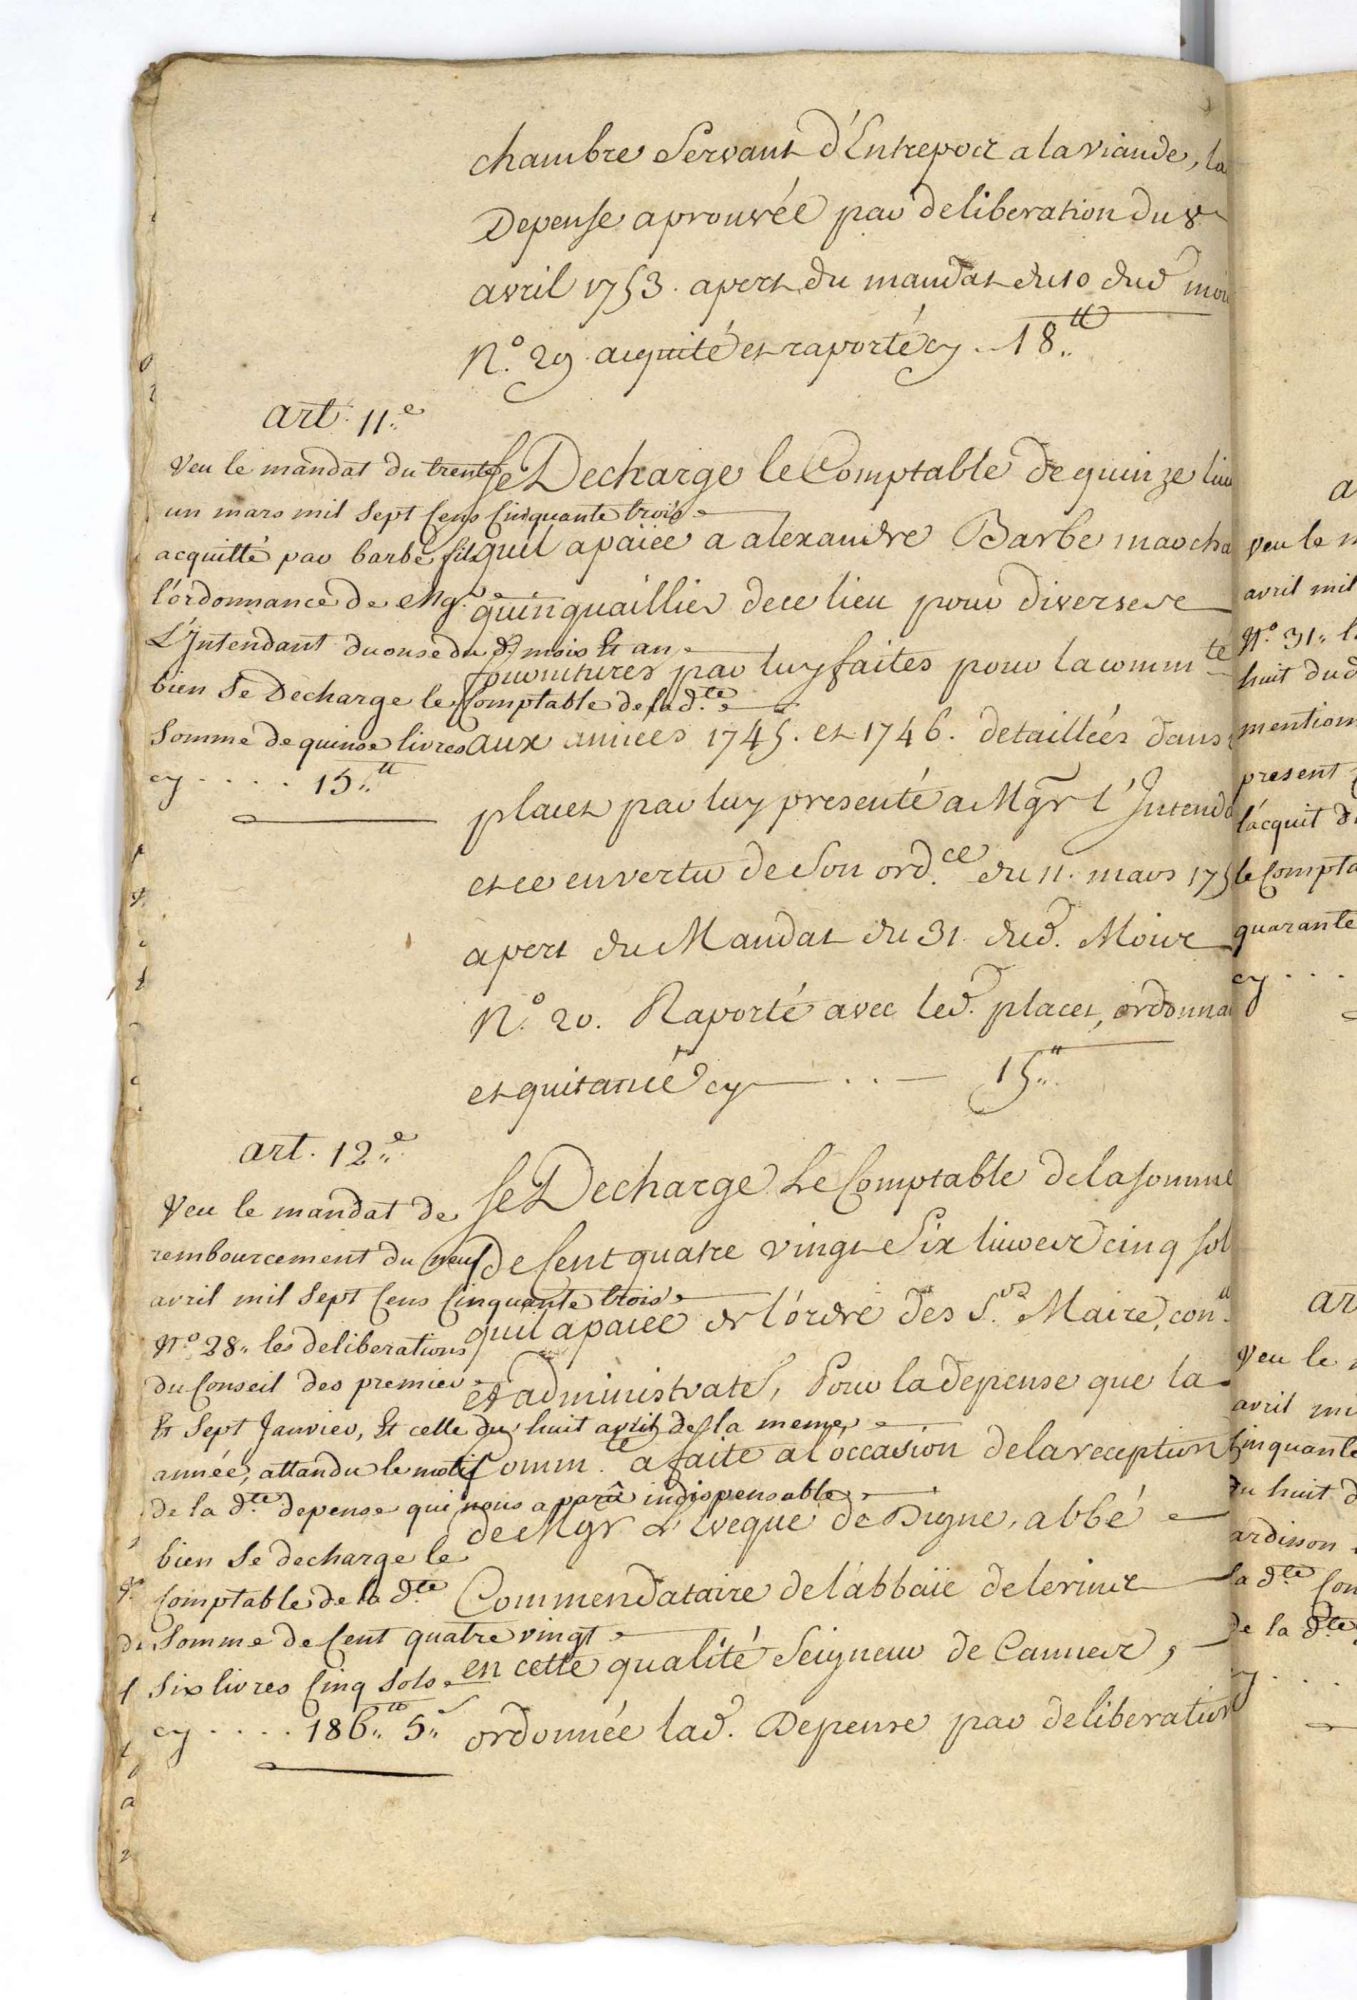 chambre Servant d'Entrepost a la viande, la
Depense aprouvée par deliberation du 8
avril 1753. apert du mandat du 10 dud mois
N.º 29 aquité et raporté cy . 18.tt
art. 11.e
Veu le mandat du trente
un mars mil sept Cens Cinquante trois
acquitté par barbe fils
l'ordonnance de Mg.r
L'Intendant du onse du d. mois Et an
bien Se Decharge le Comptable de la d.te
Somme de quinse livres
cy . . . . 15.tt
Se Decharge le Comptable de quinze liv
quil a paiée a alexandre Barbe marcha
quinquaillier de ce lieu pour diverses
fournitures par luy faites pour la comm.té
aux années 1745. et 1746. detaillées dans
placet par luy presenté a Mgr l'Intend
et ce en vertu de Son ord.ce du 11. mars 175
apert du Mandat du 31. dud. Mois
N.º 20. Raporté avec led. placet, ordonna
et quitance cy . . 15.tt
art. 12.e
Veu le mandat de
rembourcement du neuf
avril mil sept Cens Cinquante trois
N.º 28. les deliberations
du Conseil des premier
Et Sept Janvier, Et celle du huit avril de la meme
année, attandu le motif
de la d.te depense qui nous a parû indispensable
bien Se decharge le
Comptable de la d.te
Somme de Cent quatre vingt
Six livres Cinq Sols
cy . . . . 186.tt 5.s
Se Decharge Le Comptable de la somme
de Cent quatre vingt Six livres cinq sol
quil a paiée de l'ordre des S.rs Maire, con.ls
et administrate, Pour la depense que la
Comm.té a faite a l'occasion de la reception
de Mgr L'Eveque de Digne, abbé
Commendataire de l'abbaïe de lerins
en cette qualité Seigneur de Cannes,
ordonnée lad. Depense par deliberation
Veu le m
avril mil
N.º 31. l
huit du d
mention
present
l'acquit d
le Compta
quarante
cy . . .
ar
Veu le
avril mi
Cinquante
du huit d
ardisson
la d.te Com
de la d.te
cy . . .